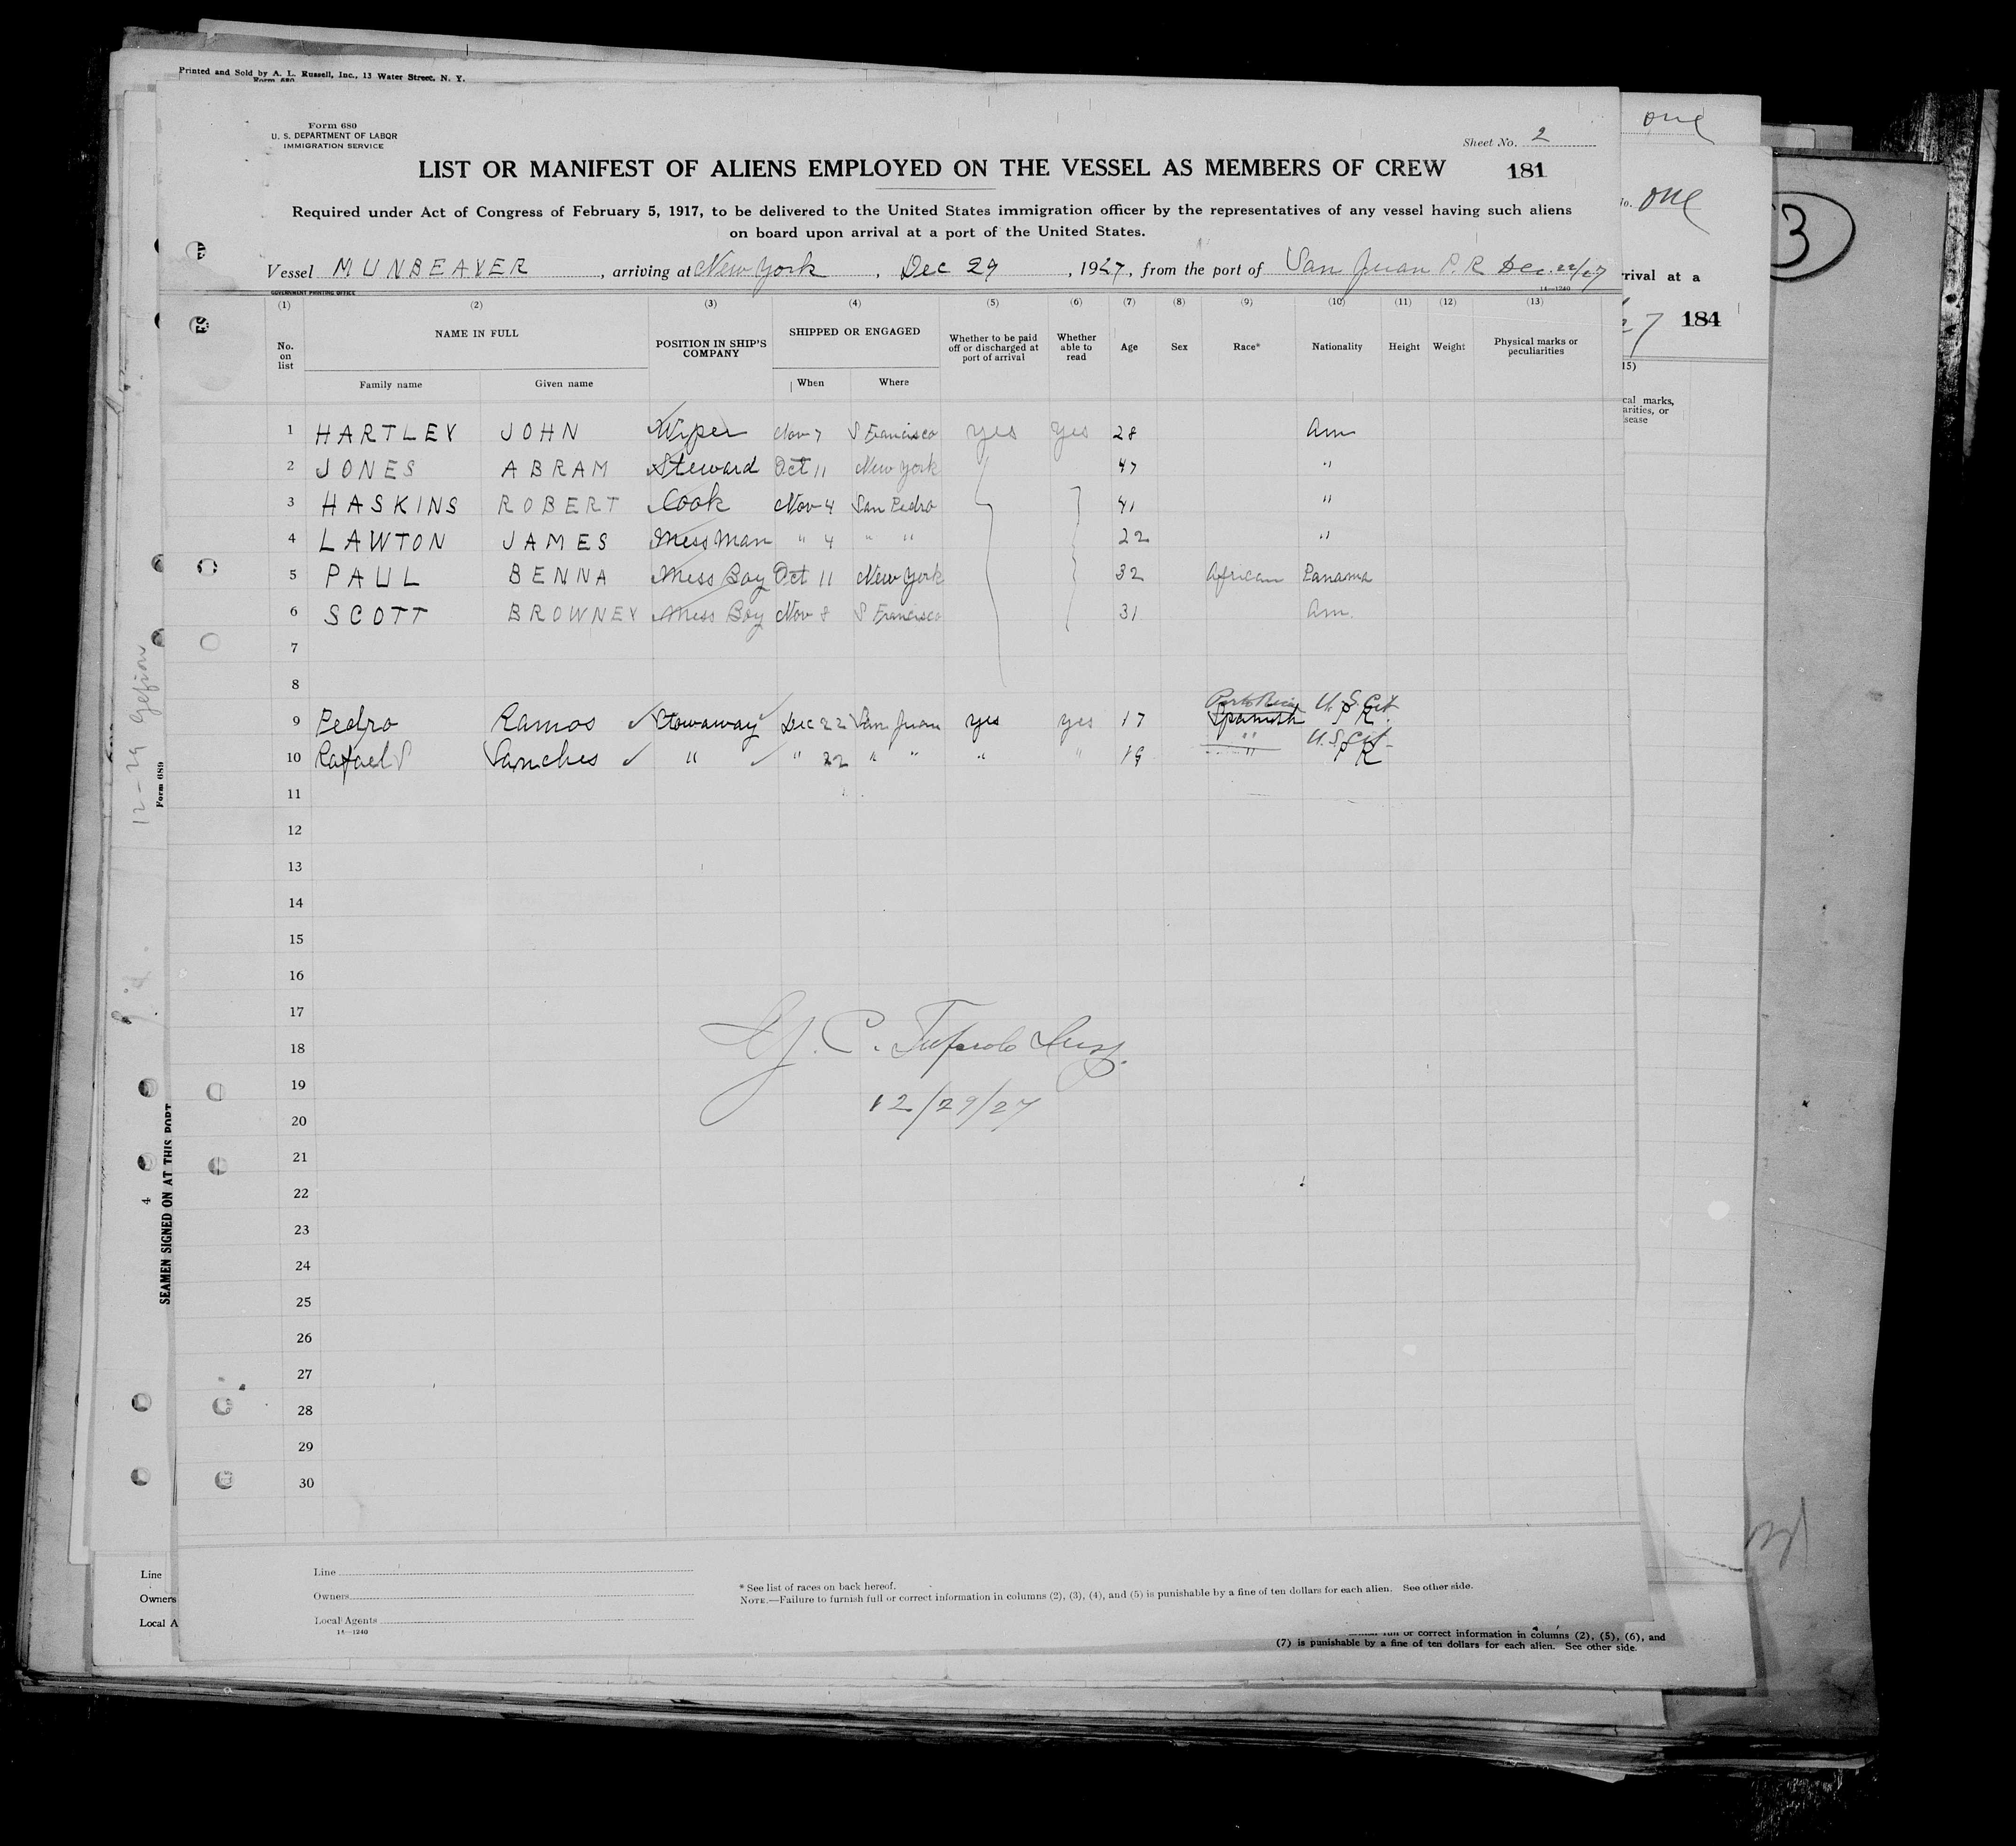 Printed and Sold by A. L. Russell, Inc., 13 Water Street, N. Y.
Form 680
Form 680
U. S. DEPARTMENT OF LABOR
IMMIGRATION SERVICE
Sheet No. 2
LIST OR MANIFEST OF ALIENS EMPLOYED ON THE VESSEL AS MEMBERS OF CREW
181
Required under Act of Congress of February 5, 1917, to be delivered to the United States immigration officer by the representatives of any vessel having such aliens
on board upon arrival at a port of the United States.
Vessel MUNBEAVER, arriving at New York, Dec 29, 1927, from the port of San Juan P.R Dec. 22/27
GOVERNMENT PRINTING OFFICE
14—1240
(1) (2) (3) (4) (5) (6) (7) (8) (9) (10) (11) (12) (13)
No. on list
NAME IN FULL
Family name Given name
POSITION IN SHIP'S COMPANY
SHIPPED OR ENGAGED
When Where
Whether to be paid off or discharged at port of arrival
Whether able to read
Age Sex Race* Nationality Height Weight
Physical marks or peculiarities
1 HARTLEY JOHN Wiper Nov 7 S Francisco yes yes 28 am
2 JONES ABRAM Steward Oct 11 New York 47 "
3 HASKINS ROBERT Cook Nov 4 San Pedro 41 "
4 LAWTON JAMES Mess Man " 4 " " 22 "
5 PAUL BENNA Mess Boy Oct 11 New York 32 African Panama
6 SCOTT BROWNEY Mess Boy Nov 8 S Francisco 31 am.
7
8
9 Pedro Ramos ✓ Stowaway ✓ Dec 22 San Juan yes yes 17 Porto Rican Spanish U.S. Cit P.R.
10 Rafael Sanches ✓ " ✓ " 22 " " " " 19 " " U.S. Cit P R
11
12
13
14
15
16
17
18
19
20
21
22
23
24
25
26
27
28
29
30
12/29/27
Line
Owners
Local Agents
14—1240
* See list of races on back hereof.
NOTE.—Failure to furnish full or correct information in columns (2), (3), (4), and (5) is punishable by a fine of ten dollars for each alien. See other side.
or correct information in columns (2), (5), (6), and
(7) is punishable by a fine of ten dollars for each alien. See other side.
one
No. one
rival at a
184
15)
cal marks,
arities, or
sease
Form 689
SEAMEN SIGNED ON AT THIS PORT
4
Line
Owners
Local A